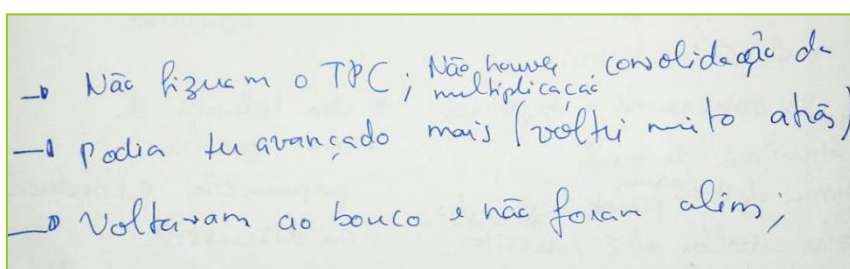 → Não fizeram o TPC; Não houve consolidação da multiplicação
→ Podia ter avançado mais (voltei muito atrás)
→ Voltaram ao bouco e não foram além;